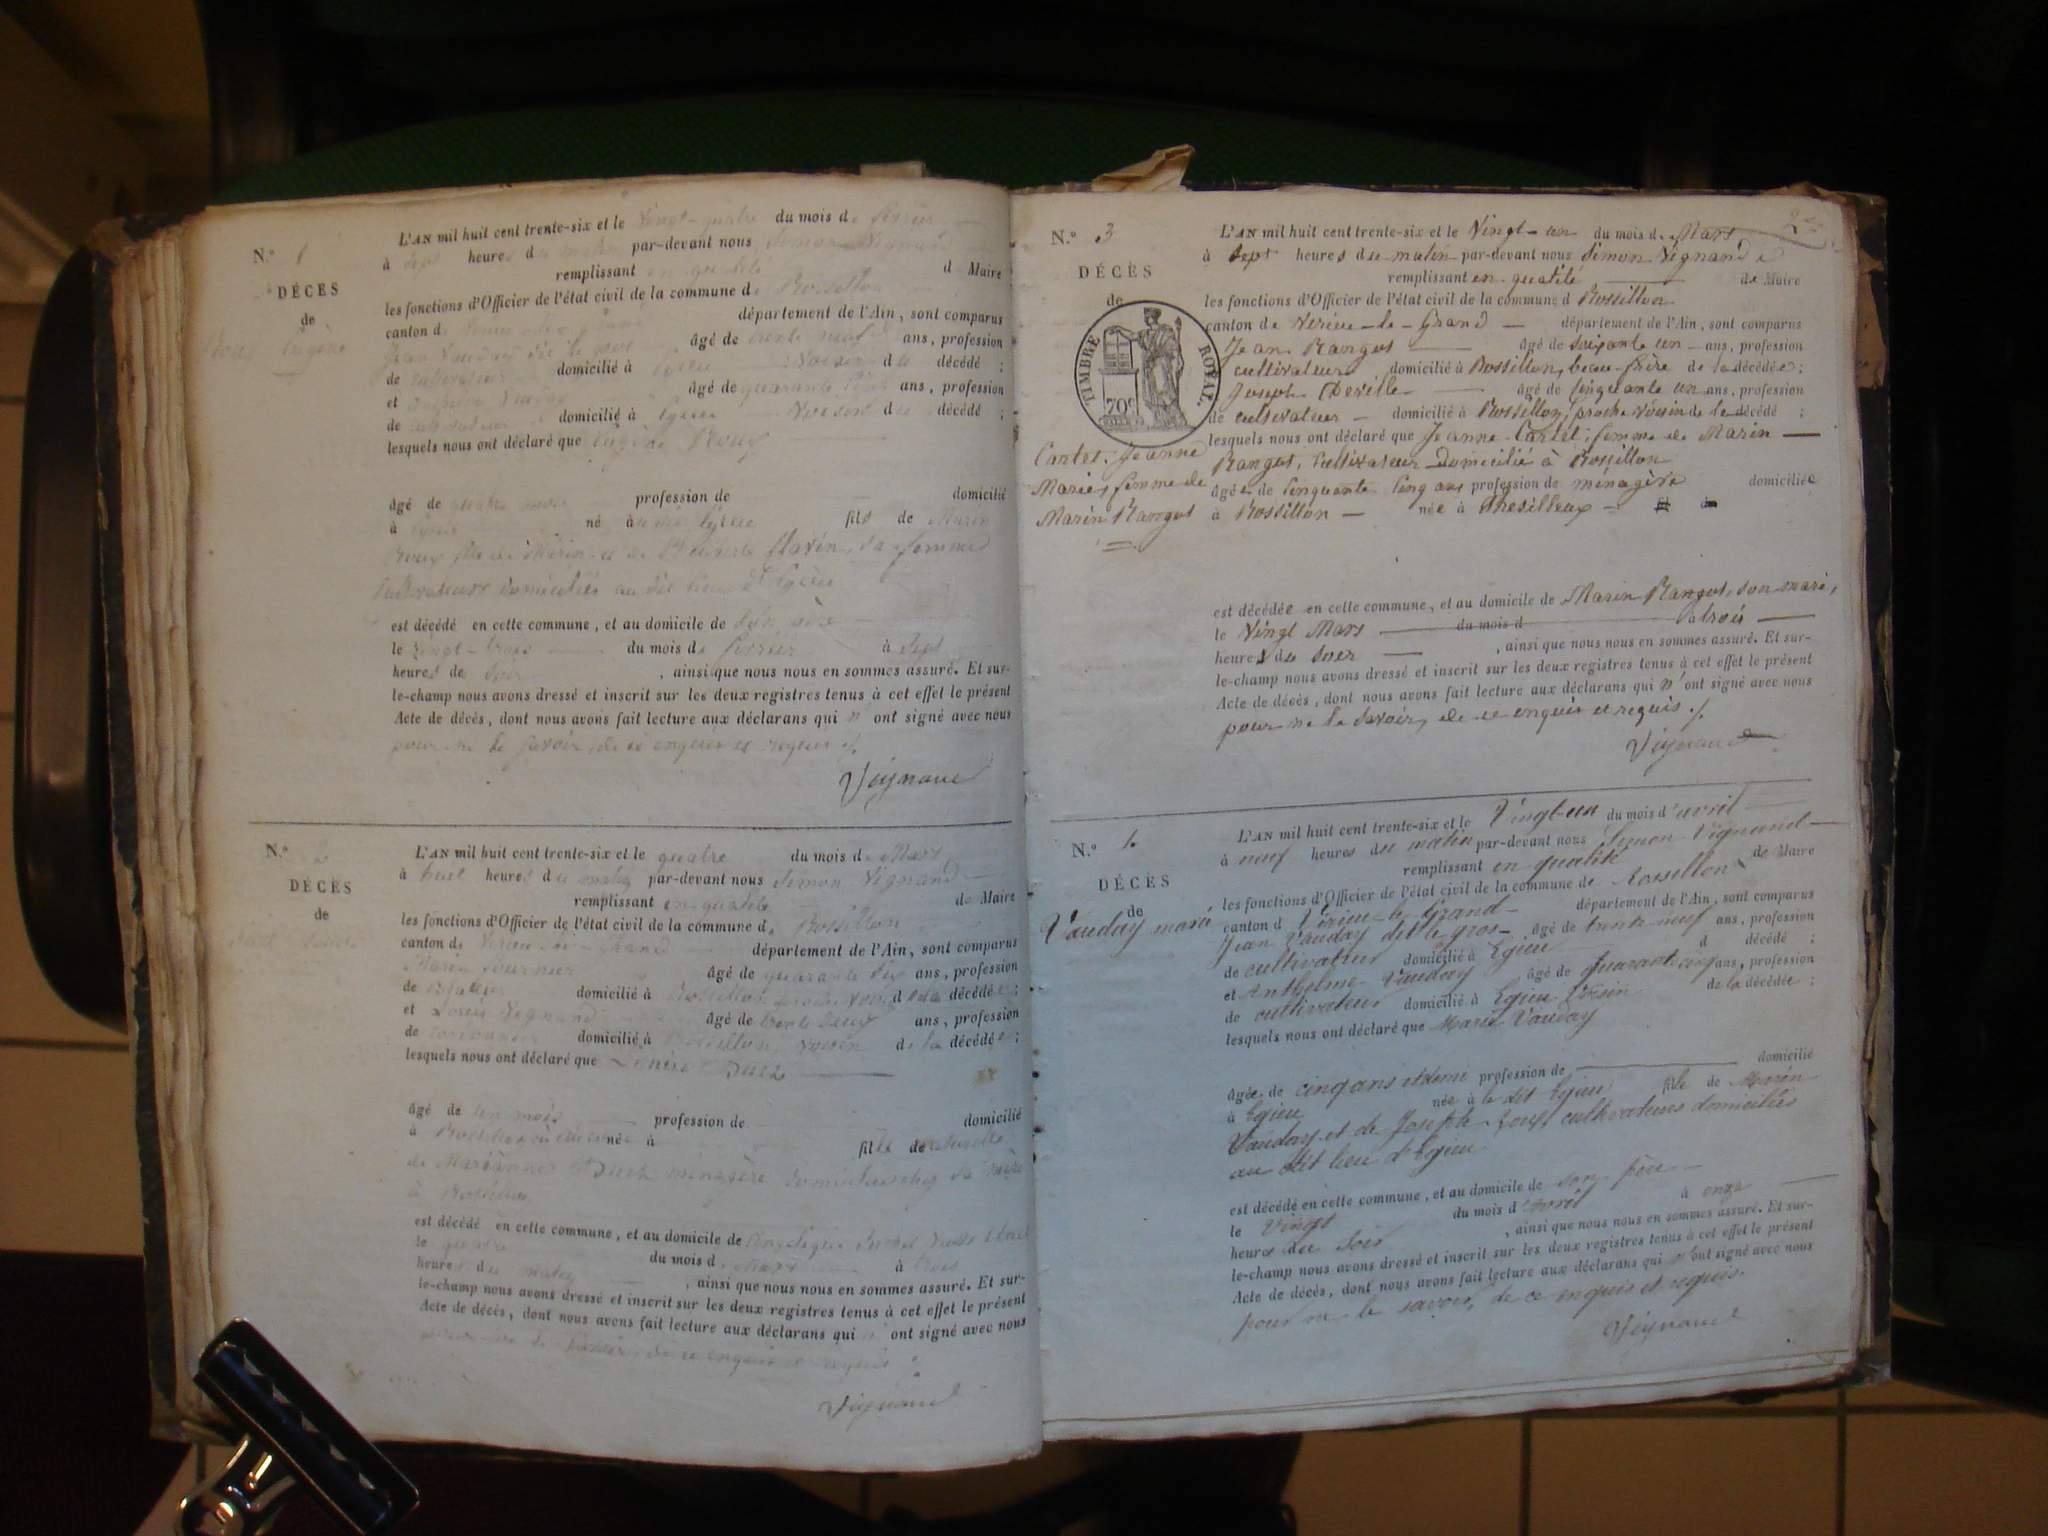 N.° 1
DÉCÈS
de
Roux Eugène
L'AN mil huit cent trente-six et le vingt-quatre du mois de février
à sept heures du matin par-devant nous Simon Vignand
remplissant en qualité d Maire
les fonctions d'Officier de l'état civil de la commune de Rossillon
canton de Virieu-le-Grand département de l'Ain, sont comparus
Jean Vauday dit le gros âgé de trente neuf ans, profession
de cultivateur domicilié à Egieu Voisin du décédé ;
et Anthelme Vauday âgé de quarante cinq ans, profession
de cultivateur domicilié à Egieu Voisin du décédé ;
lesquels nous ont déclaré que Eugène Roux
âgé de quatre mois profession de domicilié
à Egieu né à Egieu fils de Marin
Roux fils de Marin et de Flavin, sa femme
cultivateurs domiciliés au dit lieu d'Egieu
est décédé en cette commune, et au domicile de son père
le vingt-trois du mois de février à sept
heures de soir, ainsi que nous nous en sommes assuré. Et sur-
le-champ nous avons dressé et inscrit sur les deux registres tenus à cet effet le présent
Acte de décès, dont nous avons fait lecture aux déclarans qui n' ont signé avec nous
pour ne le savoir, de ce enquis et requis ./.
Vignand
N.° 2
DÉCÈS
de
L'AN mil huit cent trente-six et le quatre du mois de Mars
à huit heures du matin par-devant nous Simon Vignand
remplissant en qualité de Maire
les fonctions d'Officier de l'état civil de la commune de Rossillon
canton de Virieu-le-Grand département de l'Ain, sont comparus
Marin Fournier âgé de quarante six ans, profession
de domicilié à Rossillon, proche voisin de la décédée ;
et Louis Vignand âgé de trente deux ans, profession
de domicilié à Rossillon, voisin de la décédée ;
lesquels nous ont déclaré que
âgé de un mois profession de domicilié
à née à fille de naturelle
de Marianne ménagère domiciliée chez sa mère
à Rossillon
est décédé en cette commune, et au domicile de
le quatre du mois de Mars à trois
heures du matin, ainsi que nous nous en sommes assuré. Et sur-
le-champ nous avons dressé et inscrit sur les deux registres tenus à cet effet le présent
Acte de décès, dont nous avons fait lecture aux déclarans qui n' ont signé avec nous
pour ne le savoir, de ce enquis et requis
Vignand
2
N.° 3
DÉCÈS
de
TIMBRE ROYAL.
70c
Cartet, Jeanne
Marie, femme de
Marin Rangot
L'AN mil huit cent trente-six et le Vingt-un du mois de Mars
à sept heures du matin par-devant nous Simon Vignand
remplissant en qualité de Maire
les fonctions d'Officier de l'état civil de la commune d Rossillon
canton de Virieu-le-Grand département de l'Ain, sont comparus
Jean Rangot âgé de soixante un ans, profession
cultivateur domicilié à Rossillon, beau-frère de la décédée ;
Joseph Deville âgé de Cinquante un ans, profession
de cultivateur domicilié à Rossillon, proche voisin de la décédé ;
lesquels nous ont déclaré que Jeanne Cartet, femme de Marin
Rangot, Cultivateur domicilié à Rossillon
âgée de Cinquante Cinq ans profession de ménagère domiciliée
à Rossillon née à Chesilleux fil de
est décédée en cette commune, et au domicile de Marin Rangot, son mari,
le Vingt Mars du mois d à trois
heures du soir, ainsi que nous nous en sommes assuré. Et sur-
le-champ nous avons dressé et inscrit sur les deux registres tenus à cet effet le présent
Acte de décès, dont nous avons fait lecture aux déclarans qui n' ont signé avec nous
pour ne le savoir, de ce enquis et requis ./.
Vignand
N.° 4
DÉCÈS
de
Vauday marie
L'AN mil huit cent trente-six et le Vingt-un du mois d'avril
à neuf heures du matin par-devant nous Simon Vignand
remplissant en qualité de Maire
les fonctions d'Officier de l'état civil de la commune de Rossillon
canton d Virieu-le-Grand département de l'Ain, sont comparus
Jean Vauday dit le gros âgé de trente neuf ans, profession
de cultivateur domicilié à Egieu d décédé ;
et Anthelme Vauday âgé de quarante cinq ans, profession
de cultivateur domicilié à Egieu Voisin de la décédée ;
lesquels nous ont déclaré que Marie Vauday
âgée de cinq ans et demi profession de domicilié
à Egieu née à le dit Egieu fille de Marin
Vauday et de Josephte Roux cultivateurs domiciliés
au dit lieu d'Egieu
est décédé en cette commune, et au domicile de son père
le Vingt du mois d'avril à onze
heures du soir, ainsi que nous nous en sommes assuré. Et sur-
le-champ nous avons dressé et inscrit sur les deux registres tenus à cet effet le présent
Acte de décès, dont nous avons fait lecture aux déclarans qui n'ont signé avec nous
pour ne le savoir, de ce enquis et requis.
Vignand